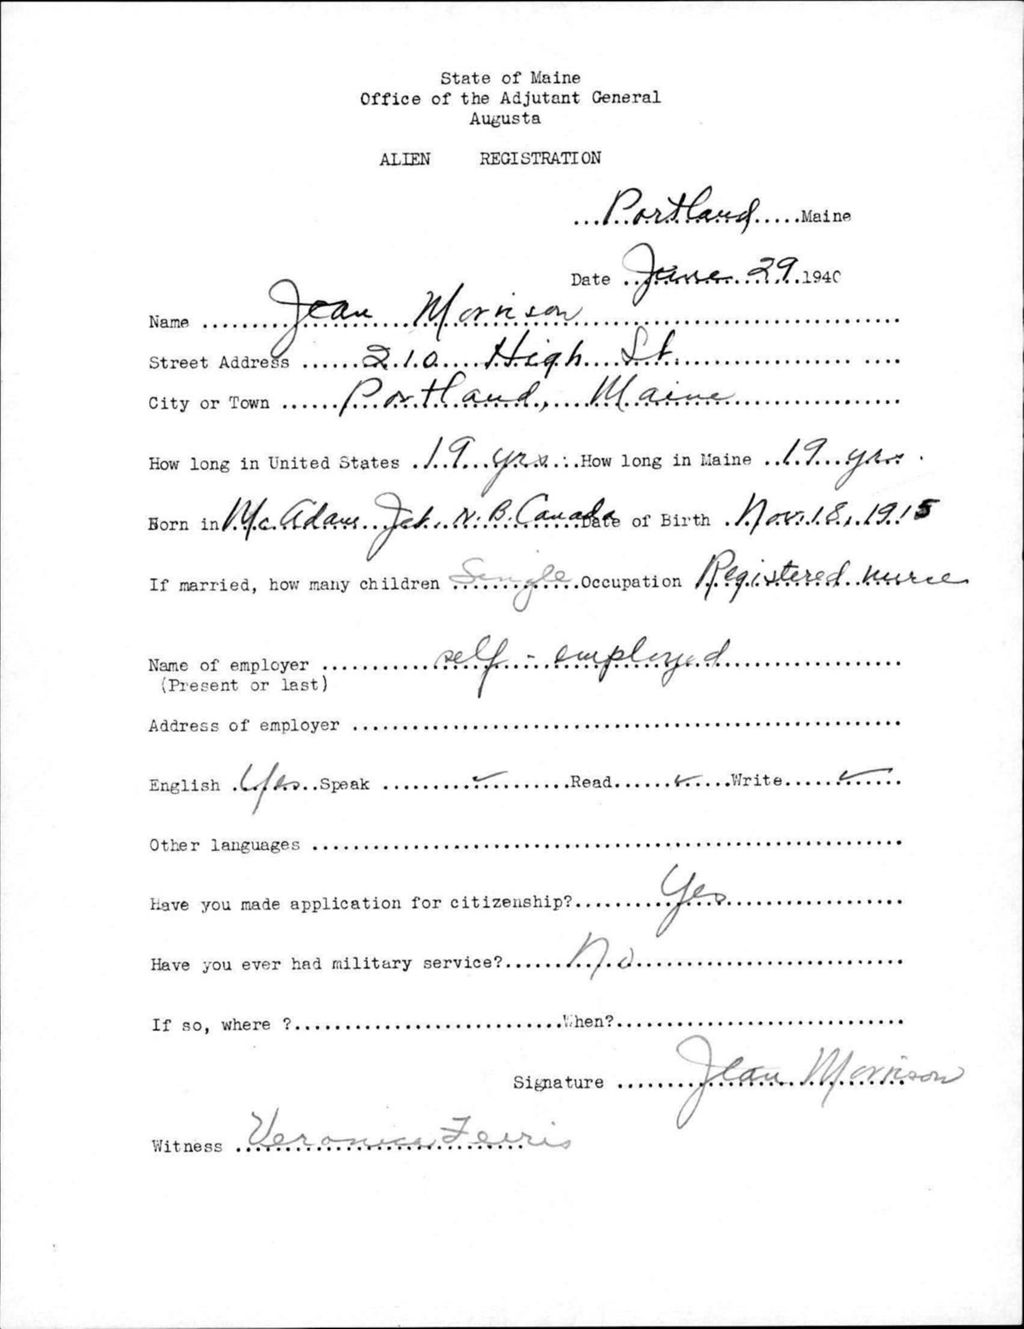 State of Maine
Office of the Adjutant General
Augusta
ALIEN REGISTRATION
...Portland.....Maine
Date ..June 29.1940
Name .........Jean Morrison
Street Address ......210 High St.
City or Town ......Portland, Maine
How long in United States .19 yrs..How long in Maine ..19 yrs.
Born in Mc Adam Jct. N.B. Canada Date of Birth .Nov. 18, 1915
If married, how many children Single.Occupation Registered nurse
Name of employer ..........self-employed
(Present or last)
Address of employer
English .Yes..Speak ..........✓.........Read.......✓.....Write......✓
Other languages
Have you made application for citizenship?..........Yes
Have you ever had military service?......No
If so, where ?...........................When?
Signature .........Jean Morrison
Witness .Veronica Ferris